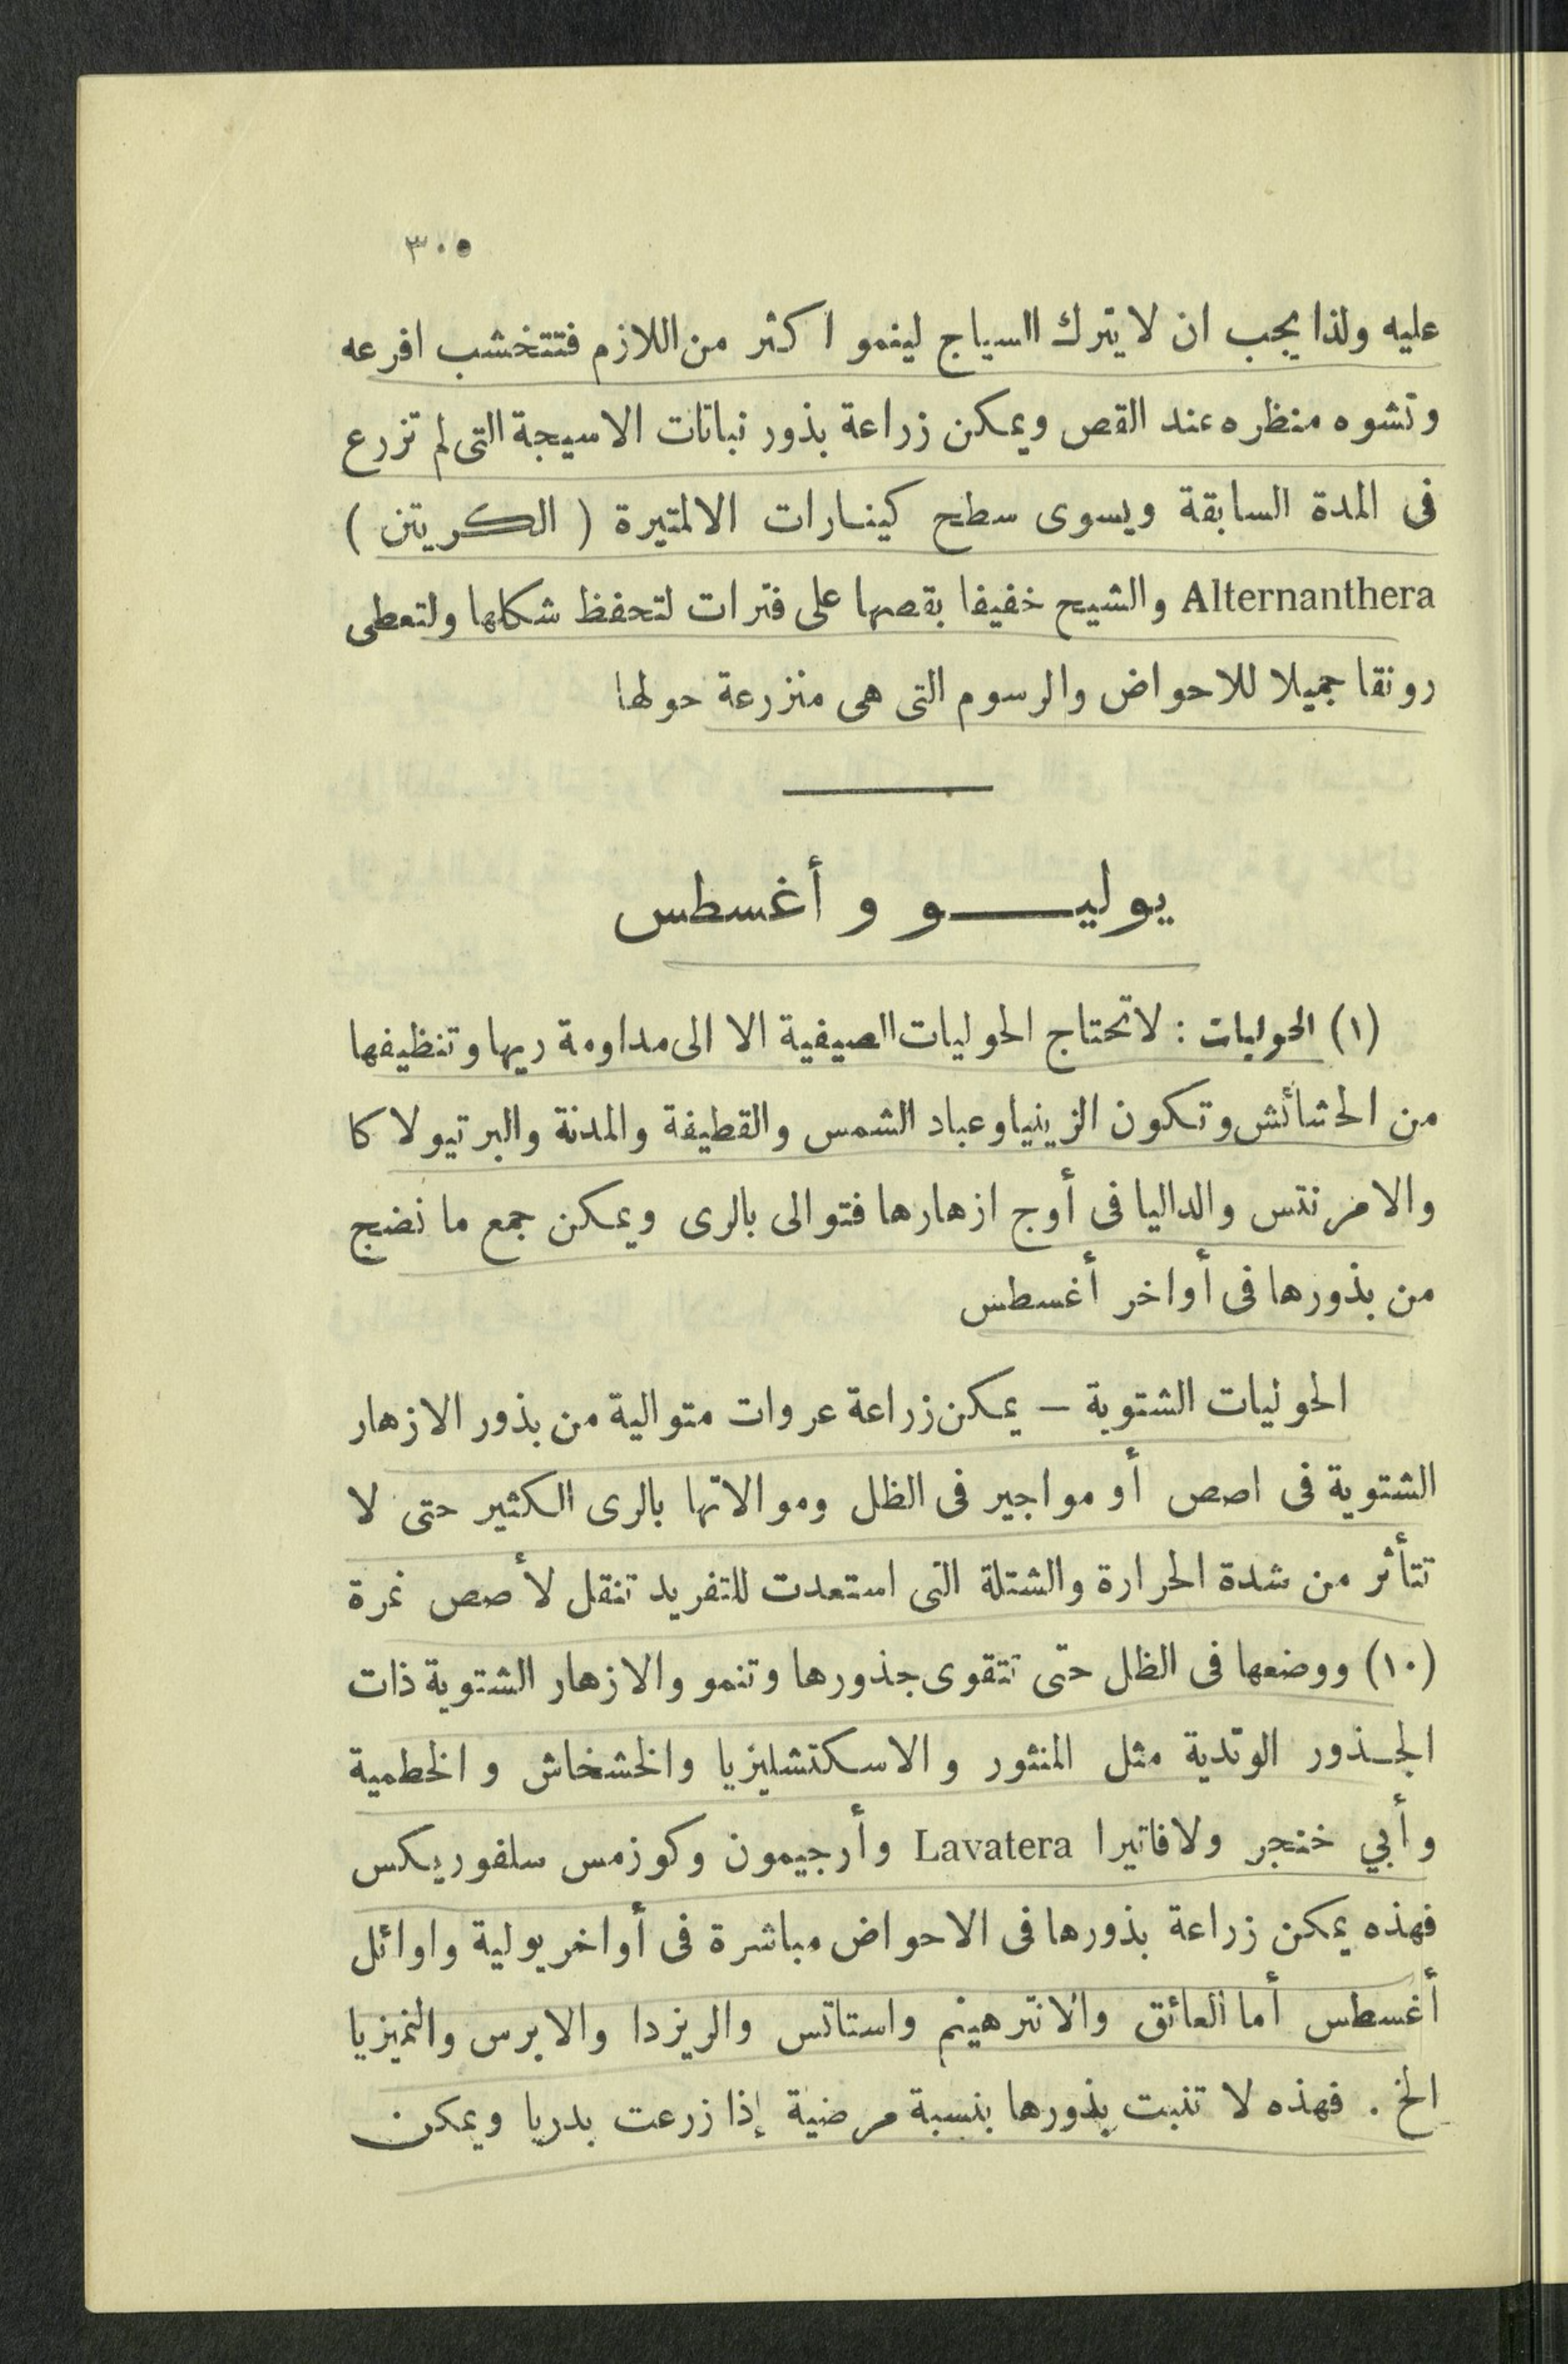 ٣٠٥
عليه ولذا يجب ان لا يترك السياج لينمو اكثر من اللازم فتتخشب افرعه
وتشوه منظره عند القص ويمكن زراعة بذور نباتات الاسيجة التى لم تزرع
فى المدة السابقة ويسوى سطح كينارات الالمتيرة ( الكريتن )
Alternanthera والشيح خفيفا بقصها على فترات لتحفظ شكلها ولتعطى
رونقا جميلا للاحواض والرسوم التى هى منزرعة حولها
يوليـــو و أغسطس
(١) الحوليات : لا تحتاج الحوليات الصيفية الا الى مداومة ريها وتنظيفها
من الحشائش وتكون الزينيا وعباد الشمس والقطيفة والمدنة والبرتيولا كا
والامرنتس والداليا فى أوج ازهارها فتوالى بالرى ويمكن جمع ما نضج
من بذورها فى أواخر أغسطس
الحوليات الشتوية – يمكن زراعة عروات متوالية من بذور الازهار
الشتوية فى اصص أو مواجير فى الظل وموالاتها بالرى الكثير حتى لا
تتأثر من شدة الحرارة والشتلة التى استعدت للتفريد تنقل لأصص نمرة
(١٠) ووضعها فى الظل حتى تتقوى جذورها وتنمو والازهار الشتوية ذات
الجـذور الوتدية مثل المنثور و الاسكتشليزيا والخشخاش و الخطمية
وأبي خنجر ولافاتيرا Lavatera وأرجيمون وكوزمس سلفوريكس
فهذه يمكن زراعة بذورها فى الاحواض مباشرة فى أواخر يولية واوائل
أغسطس أما العائق والانترهينم واستاتس والريزدا والابرس والنميزيا
الخ . فهذه لا تنبت بذورها بنسبة مرضية إذا زرعت بدريا ويمكن